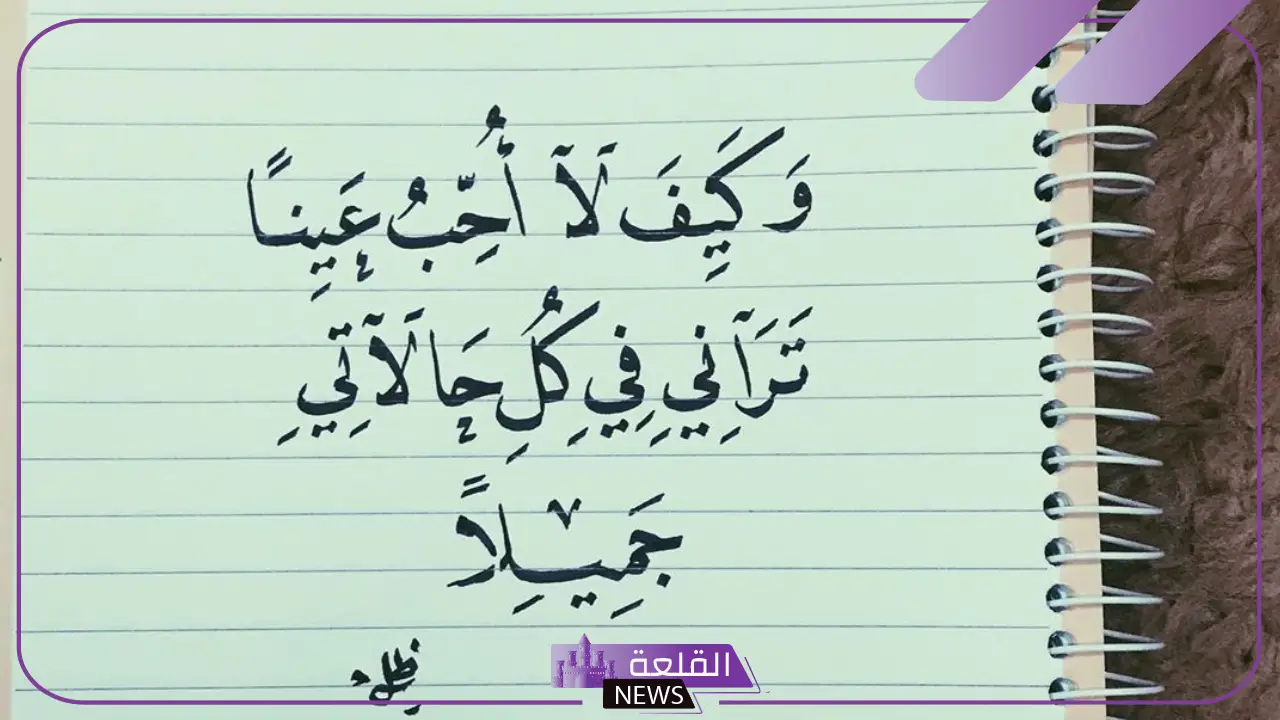 وَكَيِفَ لَآ أُحِّبُ عَيِنًا
تَرَآنِي فِي كُلِ حَالَآتِي
جَمِيِلاً
القلعة
NEWS